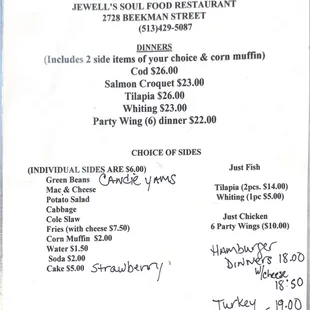 JEWELL'S SOUL FOOD RESTAURANT
2728 BEEKMAN STREET
(513)429-5087
DINNERS
(Includes 2 side items of your choice & corn muffin)
Cod $26.00
Salmon Croquet $23.00
Tilapia $26.00
Whiting $23.00
Party Wing (6) dinner $22.00
CHOICE OF SIDES
(INDIVIDUAL SIDES ARE $6.00)
Green Beans CANDIE YAMS
Mac & Cheese
Potato Salad
Cabbage
Cole Slaw
Fries (with cheese $7.50)
Corn Muffin $2.00
Water $1.50
Soda $2.00
Cake $5.00 Strawberry
Just Fish
Tilapia (2pcs. $14.00)
Whiting (1pc $5.00)
Just Chicken
6 Party Wings ($10.00)
Hamburger
DINNERS 18.00
w/cheese
18.50
Turkey - 19.00